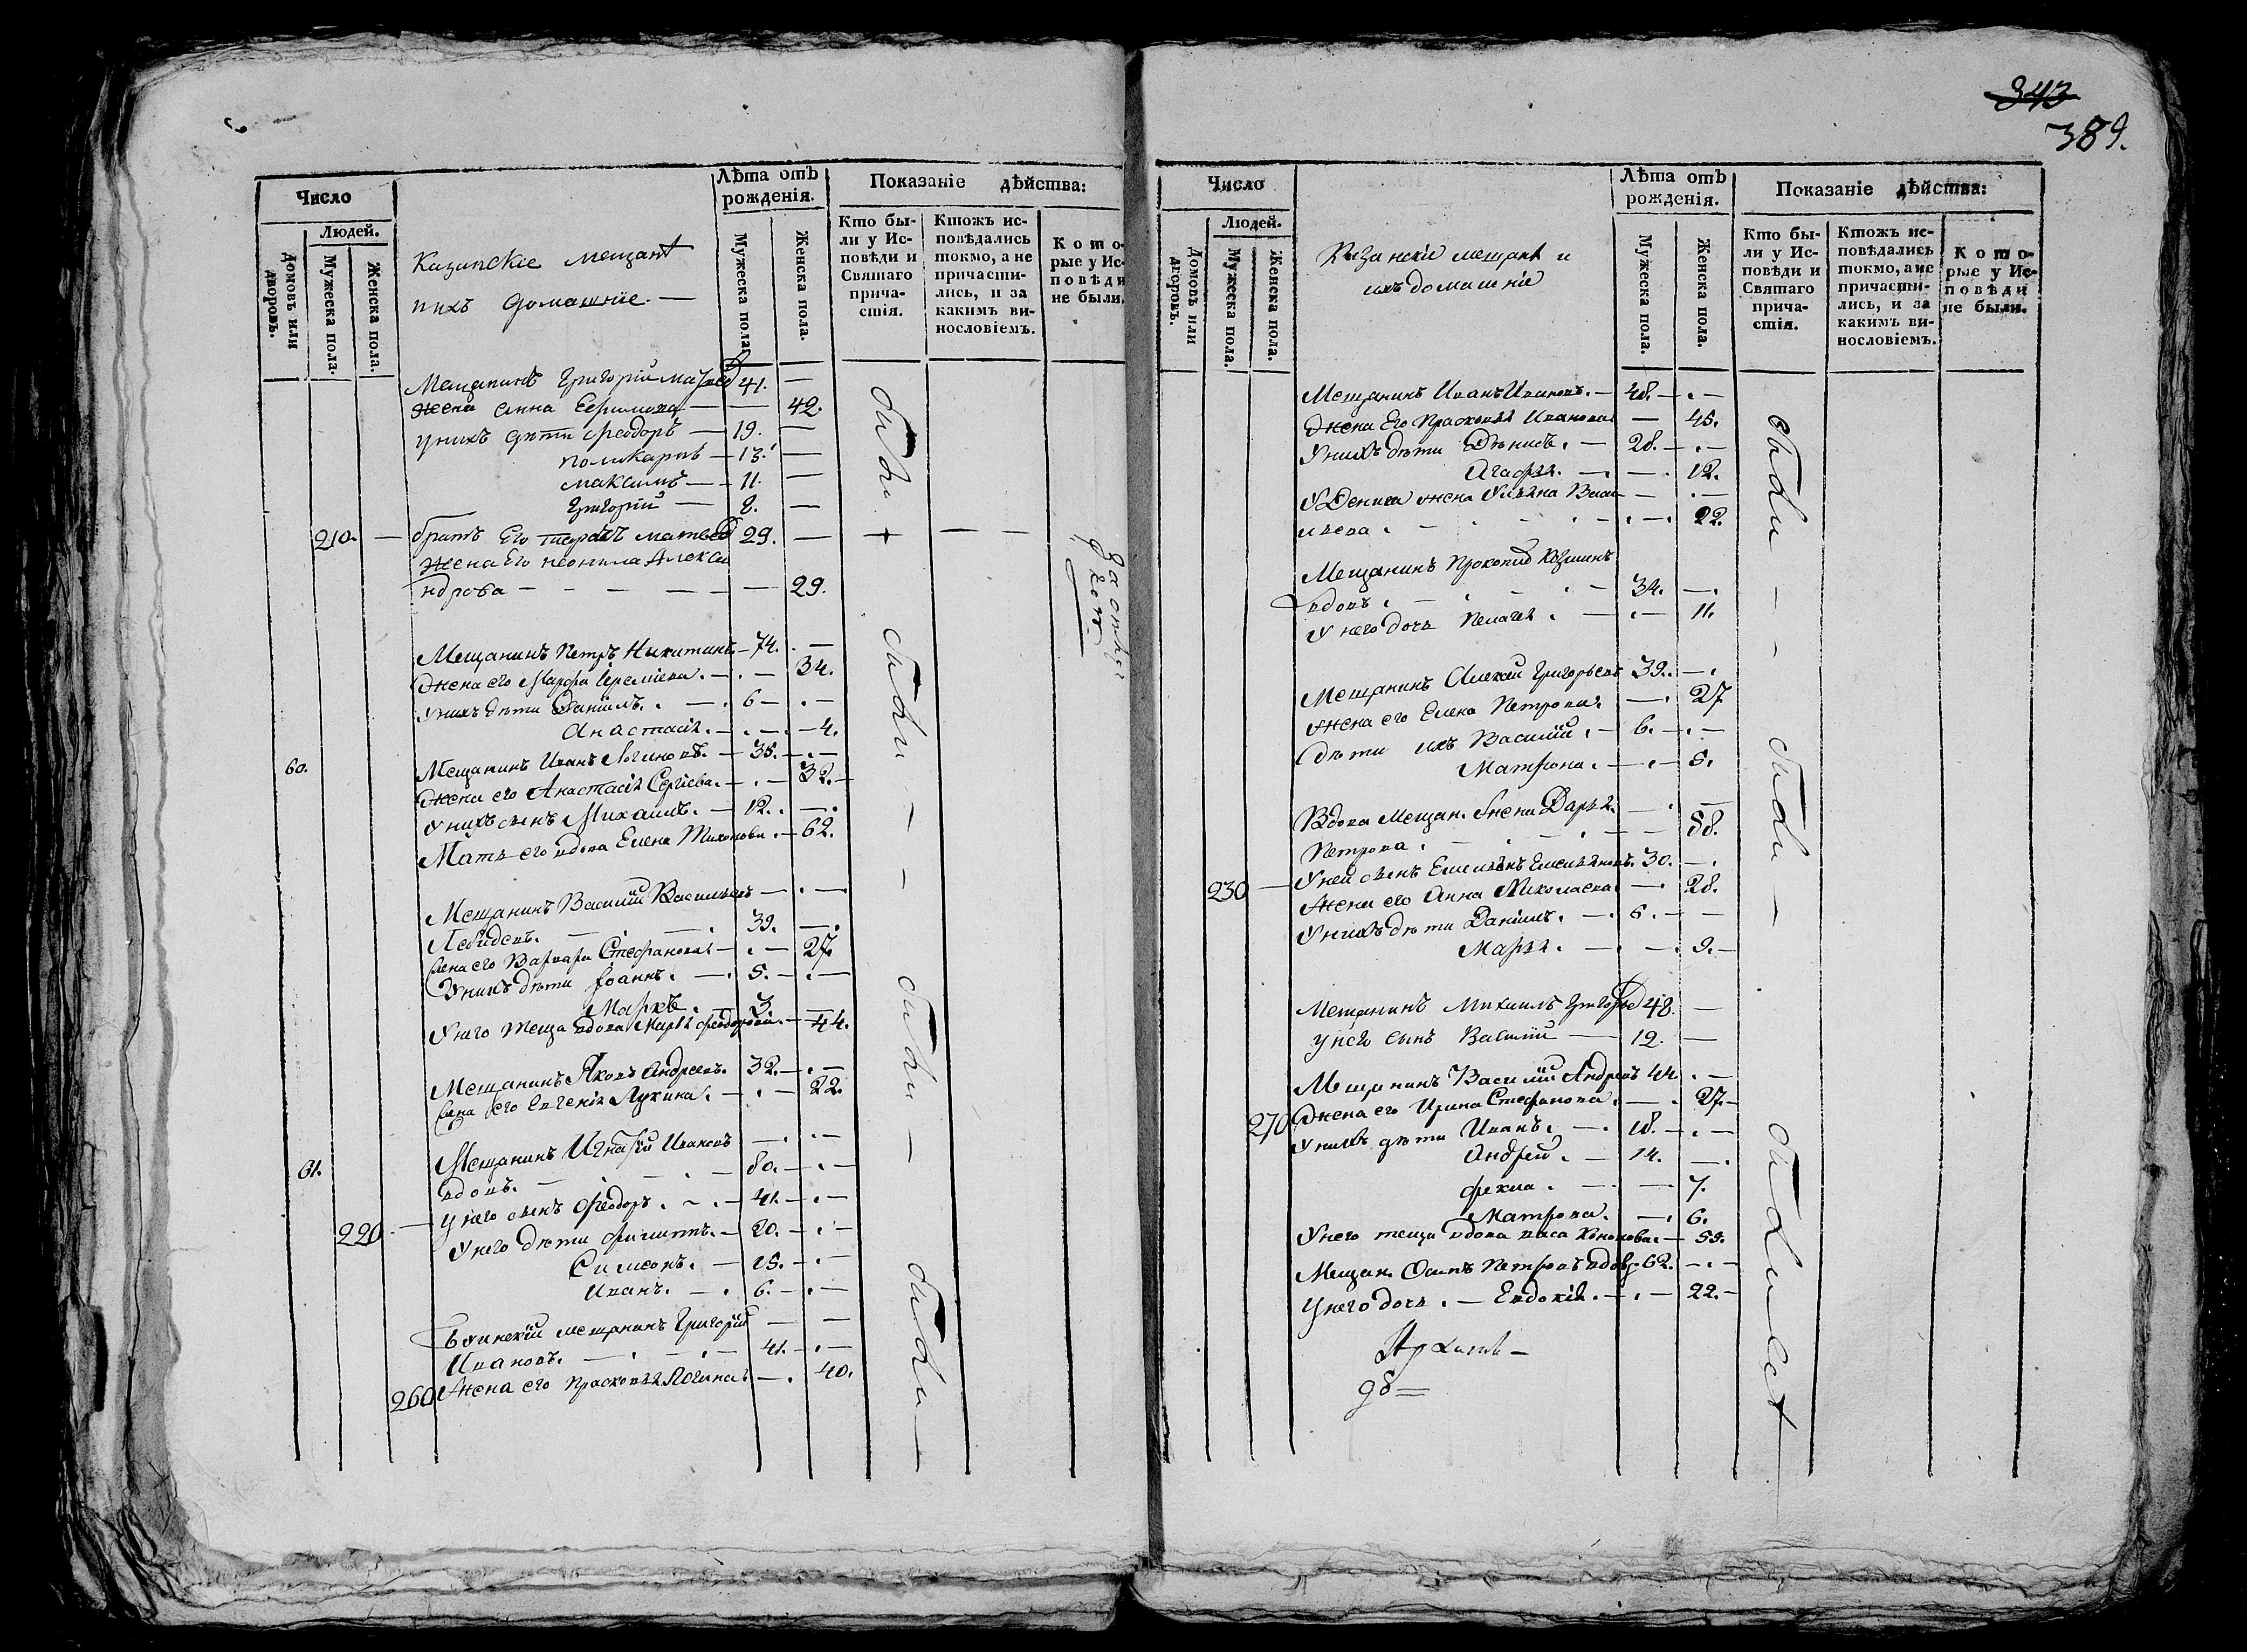 343
389.
Число
Людей.
Домовъ или дворовъ.
Мужеска пола.
Женска пола.
Казанскіе мещанѣ
ихъ домашніе. —
Лѣта отъ рожденія.
Мужеска пола.
Женска пола.
Показаніе дѣйства:
Кто были у Исповѣди и Святаго причастія.
Ктожъ исповѣдались токмо, а не причастились, и за какимъ винословіемъ.
Которые у Исповѣди не были.
Мещанинъ Григорій 41. —
жена Анна Ефимова — — 42.
у нихъ дѣти Феодоръ — 19. —
Поликарпъ — 13. —
Максимъ — 11. —
Григорій — 8. —
210. — братъ Его 29. —
Жена Его Неонила Алекса
ндрова — — — 29.
Мещанинъ Петръ Никитинъ — 74. . —
Жена его Марфа . — 34.
У нихъ дѣти Даніилъ. . — 6 — . —
Анастасія. — . — . — 4.
60. Мещанинъ Иванъ Логиновъ. — 35. — . —
Жена его Анастасія Сергіева. — . — 32. —
У нихъ сынъ Михаилъ. — 12. . — .
Мать его вдова Елена Тихонова. — 62.
Мещанинъ Василій Васильевъ — . —
Лебидевъ. — . — . 39. — .
Жена его Варвара Стефанова — . — 27.
У нихъ дѣти Іоаннъ. — . 5. — . —
Маркъ. . 3 —
У него теща вдова Марья Феодорова. — 44.
Мещанинъ Яковъ Андреевъ. 32. — . —
Жена его Евгенія Лукина. — . — 22.
61. Мещанинъ Игнатій Ивановъ — . . —
вдовъ. — . — . — 80. — . —
220. — У него сынъ Феодоръ. . — . — 41. — . —
У него дѣти Филиппъ. — 20. — . —
Симеонъ. — 15. — . —
Иванъ. — . 6. — . —
мещанинъ Григорій — —
Ивановъ. — . — . — 41. — . —
260 Жена его Прасковья Логина — . 40.
были + — —
были — — были — были —
Число
Людей.
Домовъ или дворовъ.
Мужеска пола.
Женска пола.
Казанскіе мещанѣ и
ихъ домашніе
Лѣта отъ рожденія.
Мужеска пола.
Женска пола.
Показаніе дѣйства:
Кто были у Исповѣди и Святаго причастія.
Ктожъ исповѣдались токмо, а не причастились, и за какимъ винословіемъ.
Которые у Исповѣди не были.
Мещанинъ Иванъ Ивановъ. — 48. — . —
Жена Его Прасковья Иванова — 45.
У нихъ дѣти Дѣнисъ. — 28. — . —
Агафья. — . — . 12.
У Дениса жена Ульяна Васи — . —
льева. — . — . — . 22.
Мещанинъ Прокопій
вдовъ. — . — . — 34. — .
У него дочь Пелагея. — . — 11.
Мещанинъ Алексей Григорьевъ 39. — .
Жена его Елена Петрова. — . 27
дѣти ихъ Василій. — 6. — . —
Матрона. — . — 5.
Вдова Мещан. Жена Дарья. — . —
Петрова. — . — . — 58.
У ней сынъ Емельянъ Емельяновъ. 30. — .
230 — Жена его Анна Николаева — . 28.
У нихъ дѣти Даніилъ. — . 6. — —
Марья. — . — . 9. —
Мещанинъ Михаилъ 48. —
У него сынъ Василій — 12. —
Мещанинъ Василій Андреевъ 44. . —
Жена его Ирина Стефанова. — . 27. —
270 У нихъ дѣти Иванъ. — . 18. — . —
Андрей. — 14. — .
Фекла. — . — 7.
Матрона. — . 6.
У него теща вдова — 59.
Мещан. Осипъ Петровъ вдовъ. 62. — . —
У него дочь. — Евдокія. — . — 22. —
были — — были — были